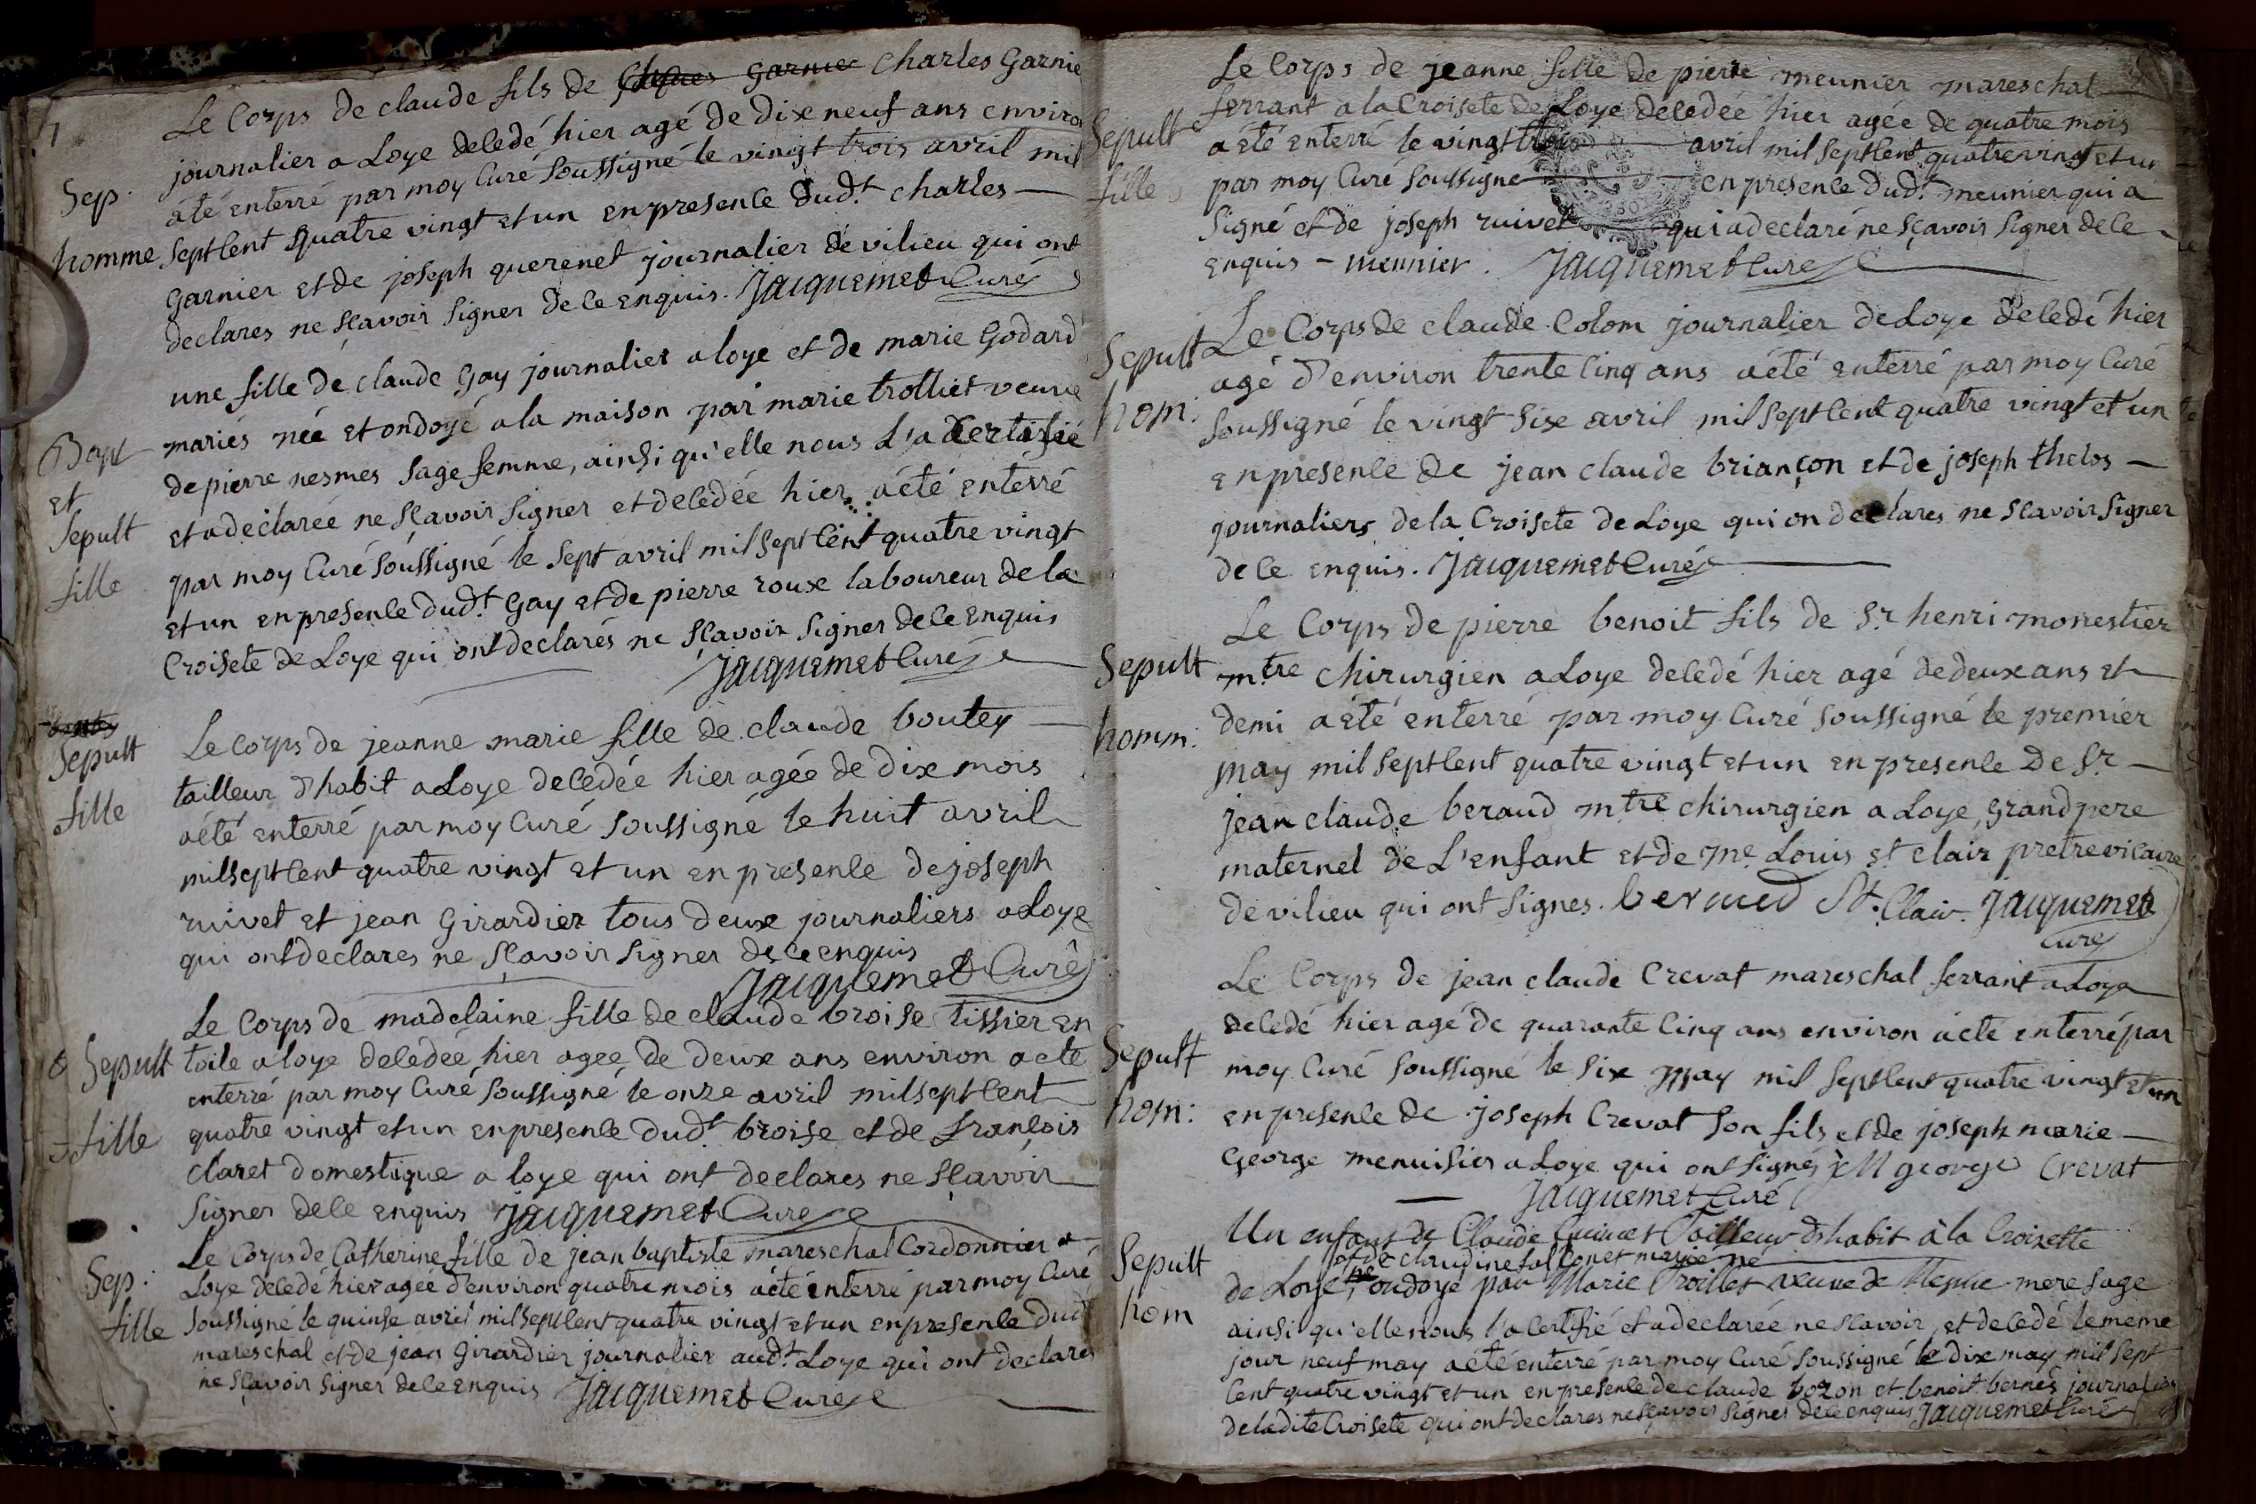 Le Corps de claude fils de Charles Garnie
journalier a Loye decedé hier agé de dix neuf ans enviro
Sep. a été enterré par moy Curé soussigné le vingt trois avril mil
homme sept Cent quatre vingt et un en presence dud.t charles
garnier et de joseph querenet journalier de vilieu qui ont
declares ne sçavoir signer de ce enquis. Jacquemet Curé
une fille de claude Gay journalier a loye et de marie Godard
Bapt mariés née et ondoyé a la maison par marie trolliet veuve
et de pierre nesmes sage femme, ainsi qu'elle nous l'a certifié
Sepult et a declarée ne sçavoir signer et decedée hier a été enterré
fille par moy Curé soussigné le sept avril mil sept Cent quatre vingt
et un en presence dud.t Gay et de pierre roux laboureur de la
Croisete de Loye qui ont declarés ne sçavoir signer de ce enquis
Jacquemet Curé
Le Corps de jeanne marie fille de claude boutey
Sepult tailleur d'habit a Loye decedée hier agée de dix mois
fille a été enterré par moy Curé soussigné le huit avril
mil sept Cent quatre vingt et un en presence de joseph
ruivet et jean Girardier tous deux journaliers a Loye
qui ont declares ne sçavoir signer de ce enquis
Jacquemet Curé
Le Corps de madelaine fille de claude broise tissier en
Sepult toile a loye decedée hier agée de deux ans environ a eté
enterré par moy Curé soussigné le onze avril mil sept Cent
fille quatre vingt et un en presence dud.t broise et de françois
claret domestique a loye qui ont declares ne sçavoir
signer de ce enquis Jacquemet Curé
Le Corps de Catherine fille de jean baptiste mareschal Cordonnier a
Sep: Loye decedé hier agée d'environ quatre mois a été enterré par moy Curé
fille soussigné le quinse avril mil sept Cent quatre vingt et un en presence dud
mareschal et de jean Girardier journalier aud.t Loye qui ont declares
ne sçavoir signer de ce enquis Jacquemet Curé
Le Corps de jeanne fille de pierre meunier mareschal
Sepult ferrant a la Croisete de Loye decedée hier agée de quatre mois
a été enterré le vingt trois avril mil sept Cent quatre vingt et un
fille par moy Curé soussigné en presence dud.t meunier qui a
signé et de joseph ruivet qui a declaré ne sçavoir signer de ce
enquis - meunier. Jacquemet Curé
Le Corps de claude Colom journalier de Loye decedé hier
Sepult agé d'environ trente Cinq ans a été enterré par moy Curé
hom: soussigné le vingt six avril mil sept Cent quatre vingt et un
en presence de jean claude briançon et de joseph thelos
journaliers de la Croisete de Loye qui on declares ne sçavoir signer
de ce enquis. Jacquemet Curé
Le Corps de pierre benoit fils de Sr henri monestier
Sepult mtre chirurgien a Loye decedé hier agé de deux ans et
homm: demi a été enterré par moy Curé soussigné le premier
may mil sept Cent quatre vingt et un en presence de Sr
jean claude beraud mtre chirurgien a Loye, grand pere
maternel de L'enfant et de Me Louis St clair pretre vicaire
de vilieu qui ont signes. beraud St. Clair. Jacquemet
Curé
Le Corps de jean claude Crevat mareschal ferrant a Loye
decedé hier agé de quarante Cinq ans environ a eté enterré par
Sepult moy Curé soussigné le six may mil sept Cent quatre vingt et un
hom: en presence de joseph Crevat son fils et de joseph marie
George menuisier a Loye qui ont signés j M george Crevat
Jacquemet Curé
Un enfant de Claude Guinet Tailleur d'habit à la Croizette
et de claudine falconet mariés né
Sepult de Loye, ondoyé par Marie Troillet veuve de Nesme mere sage
hom ainsi qu'elle nous l'a Certifié et a declarée ne sçavoir, et decedé le meme
jour neuf may a été enterré par moy Curé soussigné le dix may mil sept
Cent quatre vingt et un en presence de claude bozon et benoit bernés journaliers
de la dite Croisete qui ont declares ne sçavoir signer de ce enquis Jacquemet Curé